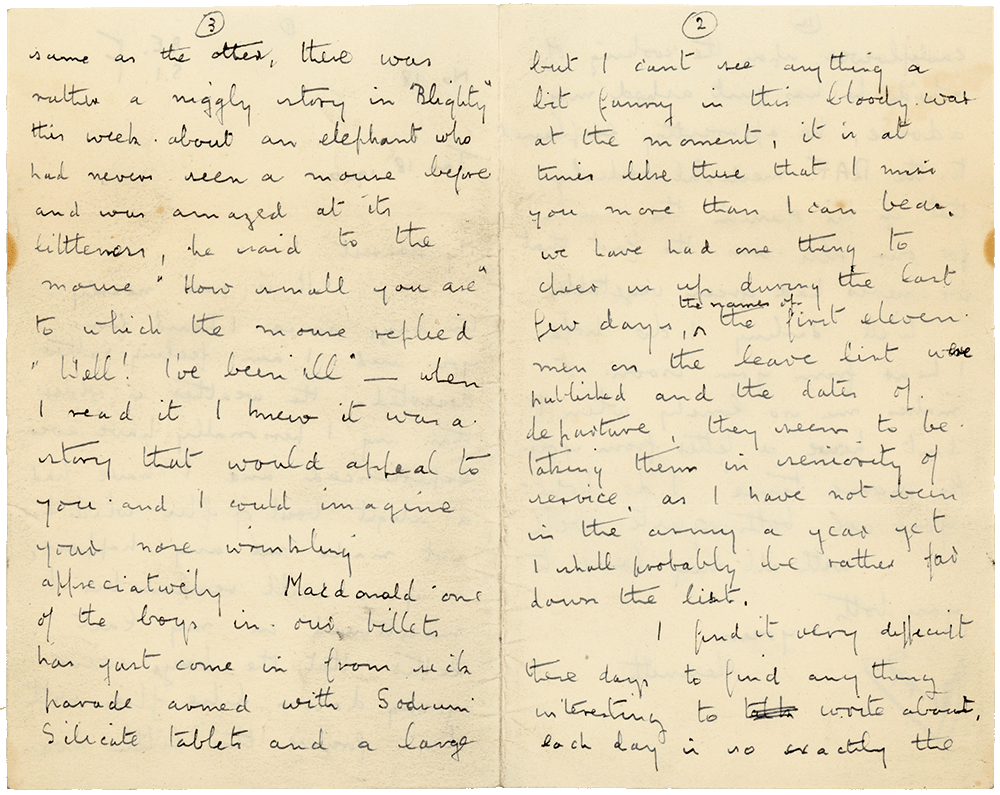 2
but I can't see anything a
bit funny in this bloody war
at the moment, it is at
times like these that I miss
you more than I can bear.
we have had one thing to
cheer us up during the last
few days, the names of the first eleven
men on the leave list were
published and the dates of
departure, they seem to be
taking them in seniority of
service, as I have not been
in the army a year yet
I shall probably be rather far
down the list.
I find it very difficult
these days to find anything
interesting to write about,
each day is so exactly the
3
same as the other, there was
rather a niggly story in "Blighty"
this week about an elephant who
had never seen a mouse before
and was amazed at its
littleness, he said to the
mouse "How small you are"
to which the mouse replied
"Well! I've been ill" — when
I read it I knew it was a
story that would appeal to
you and I could imagine
your nose wrinkling
appreciatively Macdonald one
of the boys in our billets
has just come in from sick
parade armed with Sodium
Silicate tablets and a large